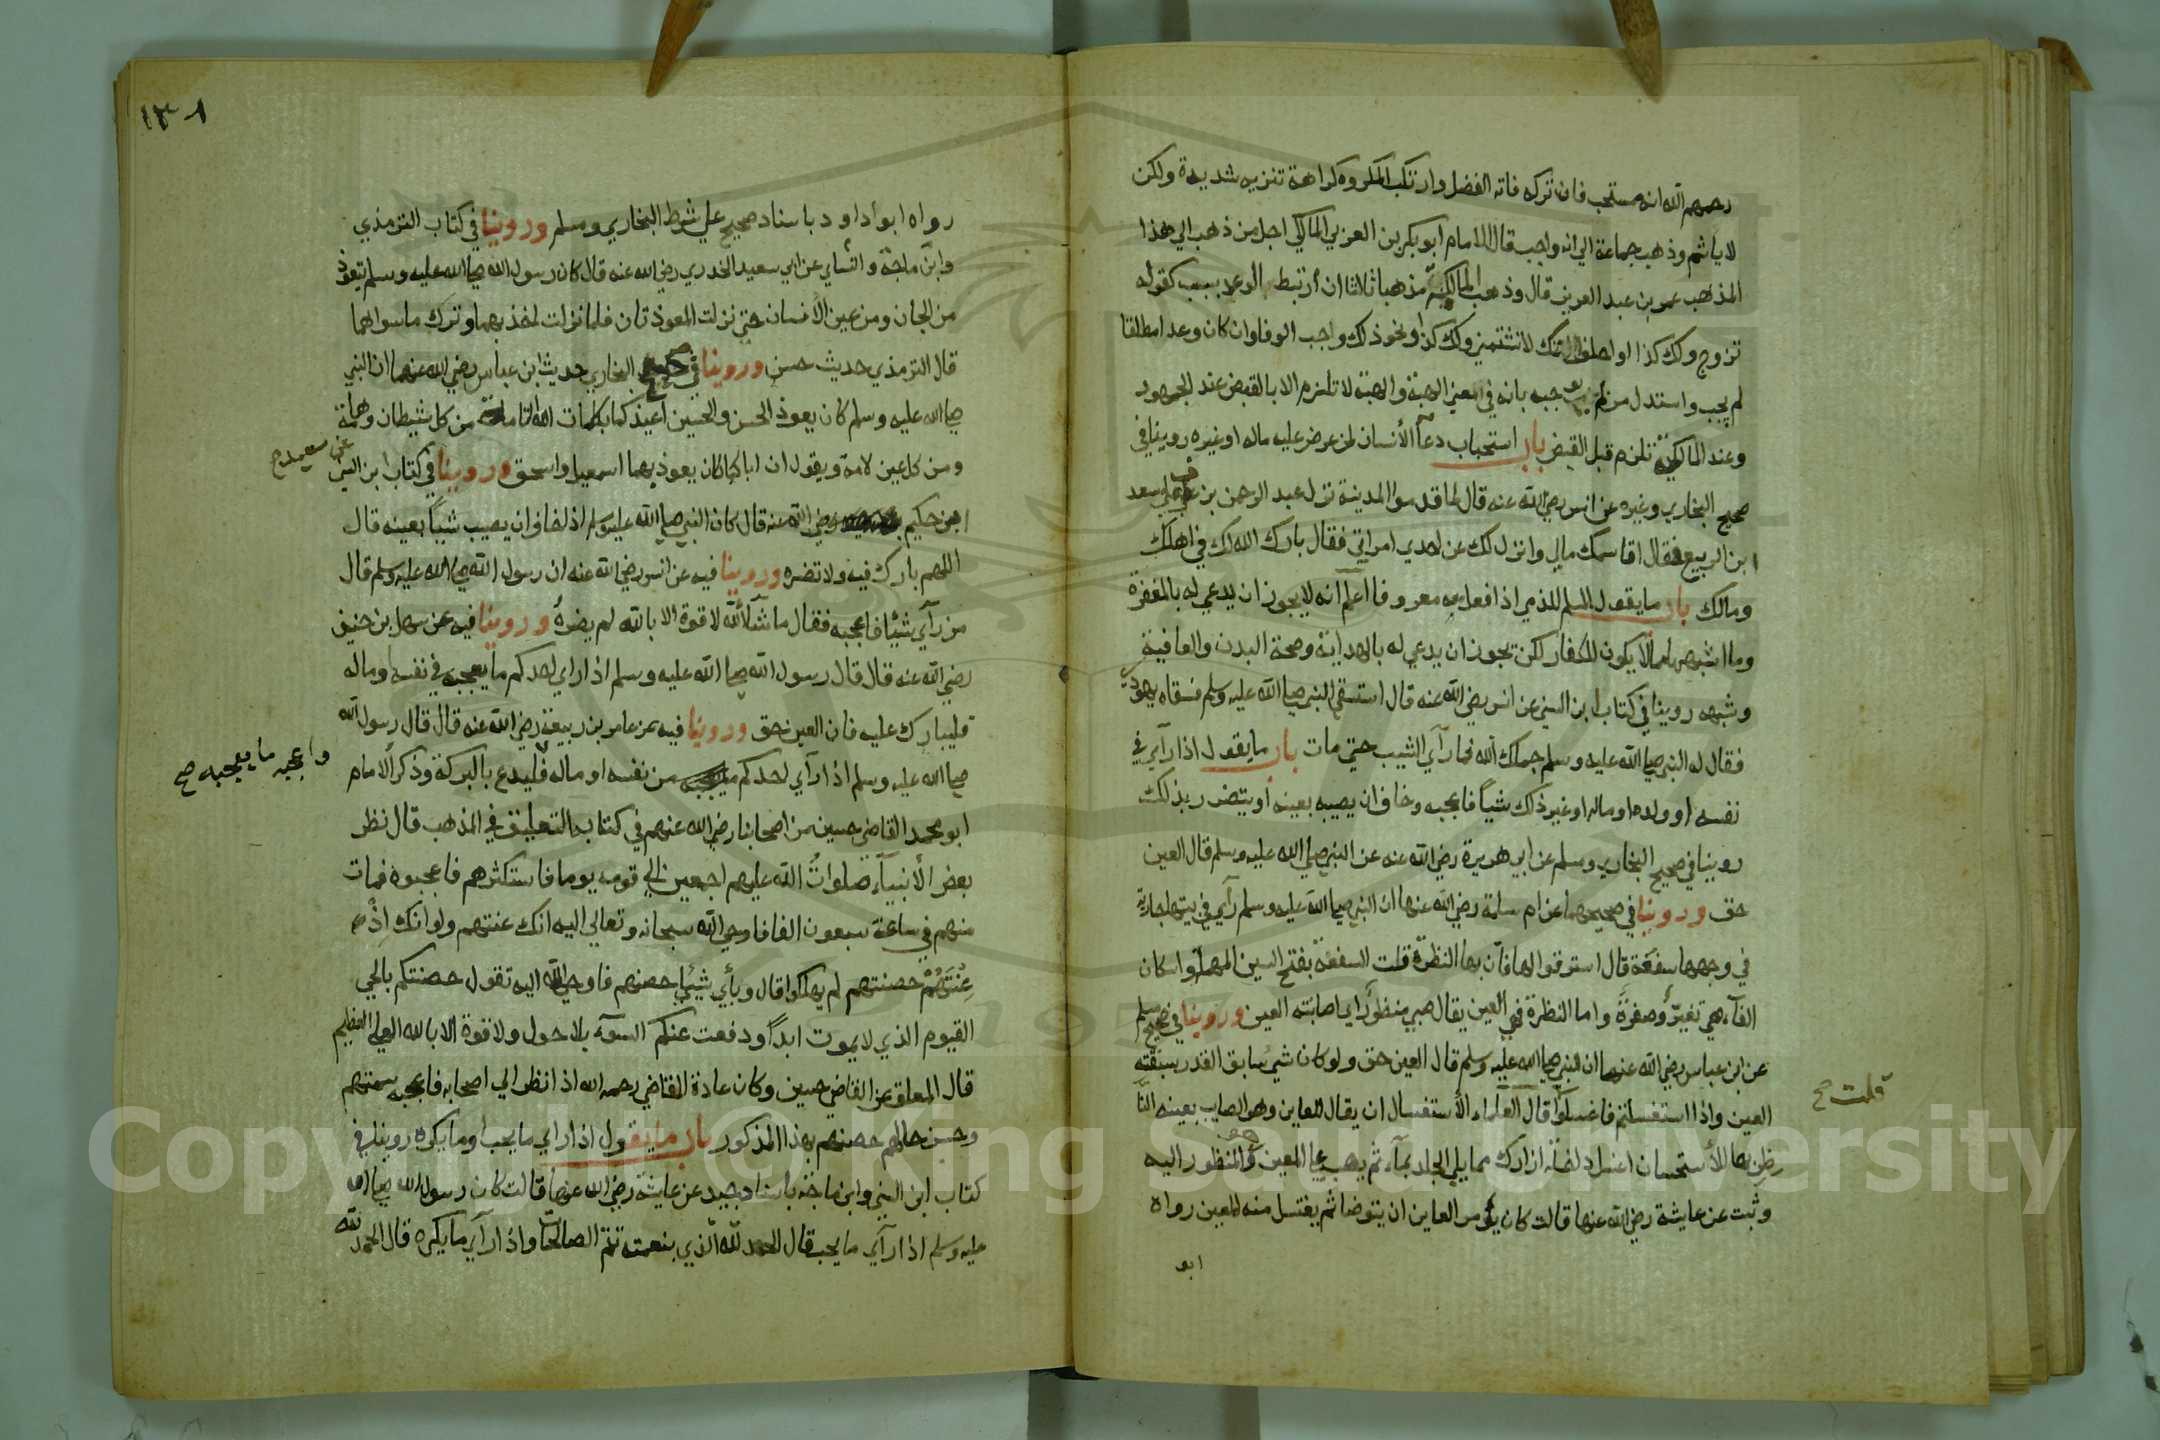 رحمهم الله انه مستحب فان تركه فاته الفضل وارتكب المكروه كراهة تنزيه شديدة ولكن
لا ياثم وذهب جماعة الي انه واجب قال الامام ابو بكر بن العربي المالكي اجل من ذهب الي هذا
المذهب عمر بن عبد العزيز قال وذهب المالكية مذهبا ثالثا ان ارتبط الوعد بسبب كقوله
تزوج ولك كذا او احلف انك لا تشتمني ولك كذا ونحو ذلك وجب الوفا وان كان وعدا مطلقا
لم يجب واستدل من لم يوجبه بانه في المعني الهبة والهبة لا تلزم الا بالقبض عند الجمهور
وعند المالكية تلزم قبل القبض باب استحباب دعآ الأنسان لمن عرض عليه ماله او غيره روينا في
صحيح البخاري وغيره عن انس رضي الله عنه قال لما قدموا المدينة نزل عبد الرحمن بن عوف علي سعد
ابن الربيع فقال اقاسمك مالي وانزل لك عن احدي امراتي فقال بارك الله لك في اهلك
ومالك باب ما يقول المسلم للذمي اذا فعل به معروفا اعلم انه لا يجوز ان يدعي له بالمغفرة
وما اشبهها مما لا يكون للكفار لكن يجوز ان يدعي له بالهداية وصحة البدن والعافية
وشبهه روينا في كتاب ابن السني عن انس رضي الله عنه قال استسقي النبي صلي الله عليه وسلم فسقاه يهودي
فقال له النبي صلي الله عليه وسلم جملك الله فما رآي الشيب حتي مات باب ما يقول اذا رآي في
نفسه او ولده او ماله او غير ذلك شيأ فاعجبه وخاف ان يصيبه بعينه او يتضرر بذلك
روينا في صحيح البخاري ومسلم عن ابي هريرة رضي الله عنه عن النبي صلي الله عليه وسلم قال العين
حق وروينا في صحيحهما عن ام سلمة رضي الله عنها ان النبي صلي الله عليه وسلم رآي في بيتها جارية
في وجهها سفعة قال استرقوا لها فان بها النظرة قلت السفعة بفتح السين المهملة واسكان
الفآء هي تغير وصفرة واما النظرة فهي العين يقال صبي منظور اي اصابته العين وروينا في صحيح مسلم
عن ابن عباس رضي الله عنهما ان النبي صلي الله عليه وسلم قال العين حق ولو كان شيء سابق القدر سبقته
العين واذا استغسلتم فاغسلوا قال العلماء الأستغسال ان يقال للعاين وهو الصايب بعينه النا
قلت صح
ظر بها للأستحسان اغسل داخلة ازارك مما يلي الجلد بمآء ثم يصب علي المعين وهو المنظور اليه
وثبت عن عايشة رضي الله عنها قالت كان يؤمر العاين ان يتوضا ثم يغتسل منه المعين رواه
ابو
١٣٨
رواه ابو اداود باسناد صحيح علي شرط البخاري ومسلم وروينا في كتاب الترمذي
وابن ماجة والنساي عن ابي سعيد الخدري رضي الله عنه قال كان رسول الله صلي الله عليه وسلم يتعوذ
من الجان ومن عين الأنسان حتي نزلت المعوذتان فلما نزلت اخذ بهما وترك ما سواهما
قال الترمذي حديث حسن وروينا في صحيح البخاري حديث ابن عباس رضي الله عنهما ان النبي
صلي الله عليه وسلم كان يعوذ الحسن والحسين اعيذكما بكلمات الله التامة من كل شيطان وهامة
ومن كل عين لامة ويقول ان اباكما كان يعوذ بهما اسمعيل واسحق وروينا في كتاب ابن السني
عن سعيد صح
ابن حكيم رضي الله عنه قال كان النبي صلي الله عليه وسلم اذا خاف ان يصيب شيأ بعينه قال
اللهم بارك فيه ولا تضره وروينا فيه عن انس رضي الله عنه ان رسول الله صلي الله عليه وسلم قال
من رآي شيئا فاعجبه فقال ما شآء الله لا قوة الا بالله لم يضره وروينا فيه عن سهل بن حنيف
رضي الله عنه قال قال رسول الله صلي الله عليه وسلم اذا راي احدكم ما يعجبه في نفسه او ماله
فليبارك عليه فان العين حق وروينا فيه عن عامر بن ربيعة رضي الله عنه قال قال رسول الله
صلي الله عليه وسلم اذا رآي احدكم من نفسه او ماله فليدع بالبركة وذكر الامام
واعجبه ما يعجبه صح
ابو محمد القاضي حسين من اصحابنا رضي الله عنهم في كتابه التعليق في المذهب قال نظر
بعض الأنبيآء صلوات الله عليهم اجمعين الي قومه يوما فاستكثرهم فاعجبوه فمات
منهم في ساعة سبعون الفا فاوحي الله سبحانه وتعالي اليه انك عنتهم ولو انك اذ
عِنْتَهُمْ حصنتهم لم يهلكوا قال وبأي شيء احصنهم فاوحي الله اليه تقول حصنتكم بالحي
القيوم الذي لا يموت ابدا ودفعت عنكم السوء بلا حول ولا قوة الا بالله العلي العظيم
قال المعلق عن القاضي حسين وكان عادة القاضي رحمه الله اذا نظر الي اصحابه فاعجبه سمتهم
وحسن حالهم حصنهم بهذا المذكور باب ما يقول اذا راي ما يحب او ما يكره روينا في
كتاب ابن السني وابن ماجة باسناد جيد عن عايشة رضي الله عنها قالت كان رسول الله صلي الله
عليه وسلم اذا رآي ما يحب قال الحمد لله الذي بنعمته تتم الصالحات واذا رآي ما يكره قال الحمد لله
Copyright © King Saud University
1957